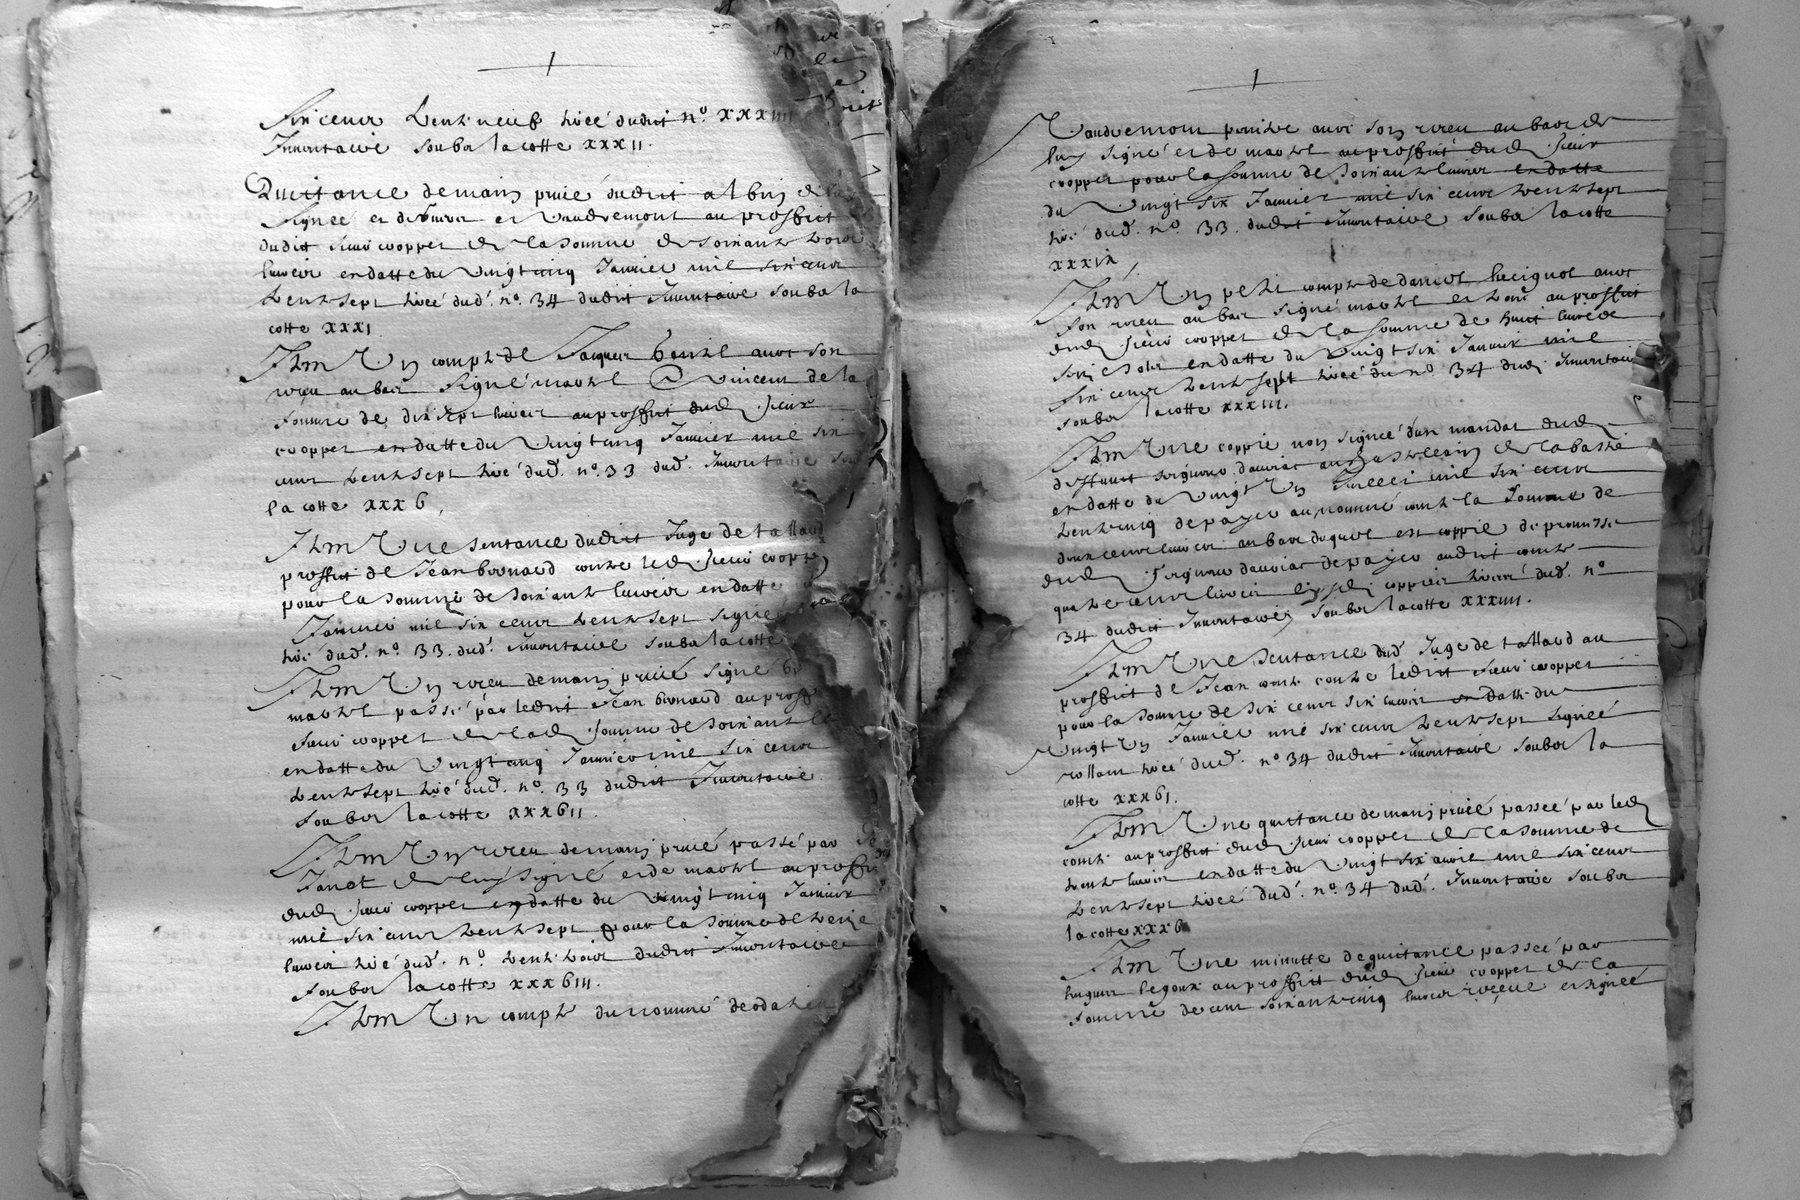 six cens trente neuf livré dudit n.º XXXIIII
Inventaire soubz la cotte XXXII.
Quittance de main privé dudit albin
signée et de et vaudremont au proffict
dudit sieur cooppet de la somme de soixante trois
livres en datte du vingt cinq Janvier mil six cens
trente sept livré dud. n.º 34 dudit Inventaire soubz la
cotte XXXI
Item Un compte de Jacques avec son
receu au bas signé martel & vincent de la
somme de dix sept livres au proffict dud. sieur
cooppet en datte du vingt cinq Janvier mil six
cens trente sept livré dud. n.º 33 dud. Inventaire
la cotte XXX6.
Item Une sentance dudit Juge de tallard
proffict de Jean bonnard contre led. sieur cooppet
pour la somme de soixante livres en datte
Janvier mil six cens trente sept signé
livré dud. n.º 33. dud. Inventaire soubz la cotte
Item Un receu de main privé signé
martel passé par ledit Jean bonnard au proff
sieur cooppet de lad. somme de soixante
en datte du vingt cinq Janvier mil six cens
trente sept livré dud. n.º 33 dudit Inventaire
soubz la cotte XXX6II.
Item Un receu de main privé passé par
Janot de luy signé et de martel au proffict
dud. sieur cooppet en datte du vingt cinq Janvier
mil six cens trente sept pour la somme de treize
livres livré dud. n.º trente trois dudit Inventaire
soubz la cotte XXX6III.
Item Un compte du nommé
Vaudremont avec son receu au bas de
luy signé et de martel au proffict dud. sieur
cooppet pour la somme de soixante livres en datte
du vingt six Janvier mil six cens trente sept
livré dud. n.º 33. dudit Inventaire soubz la cotte
XXXIX,
Item Un petit compte de avec
son receu au bas signé martel et au proffict
dud. sieur cooppet de la somme de huict livres
en datte du vingt six Janvier mil
six cens trente sept livré du n.º 34 dud. Inventaire
soubz la cotte XXXIII.
Item Une coppie non signée d'un mandat dud.
deffunt seigneur d'auriac au de la bastie
en datte du vingt Un mil six cens
trente cinq de payer au nommé conte la somme de
deux cens livres au bas duquel est coppie de promesse
dud. seigneur dauriac de payer audit conte
quatre cens livres coppies livré dud. n.º
34 dudit Inventaire soubz la cotte XXXIIII.
Item Une sentance dud. Juge de tallard au
proffict de Jean conte contre ledit sieur cooppet
pour la somme de six cens six livres en datte du
vingt Un Janvier mil six cens trente sept signée
rollant livré dud. n.º 34 dudit Inventaire soubz la
cotte XXX6I.
Item Une quittance de main privé passée par led.
conte au proffict dud. sieur cooppet de la somme de
trente livres en datte du vingt six avril mil six cens
trente sept livré dud. n.º 34 dud. Inventaire soubz
la cotte XXX6
Item Une minutte de quittance passée par
hugues legoux au proffict dud. sieur cooppet de la
somme de cent soixante cinq livres receue et signée